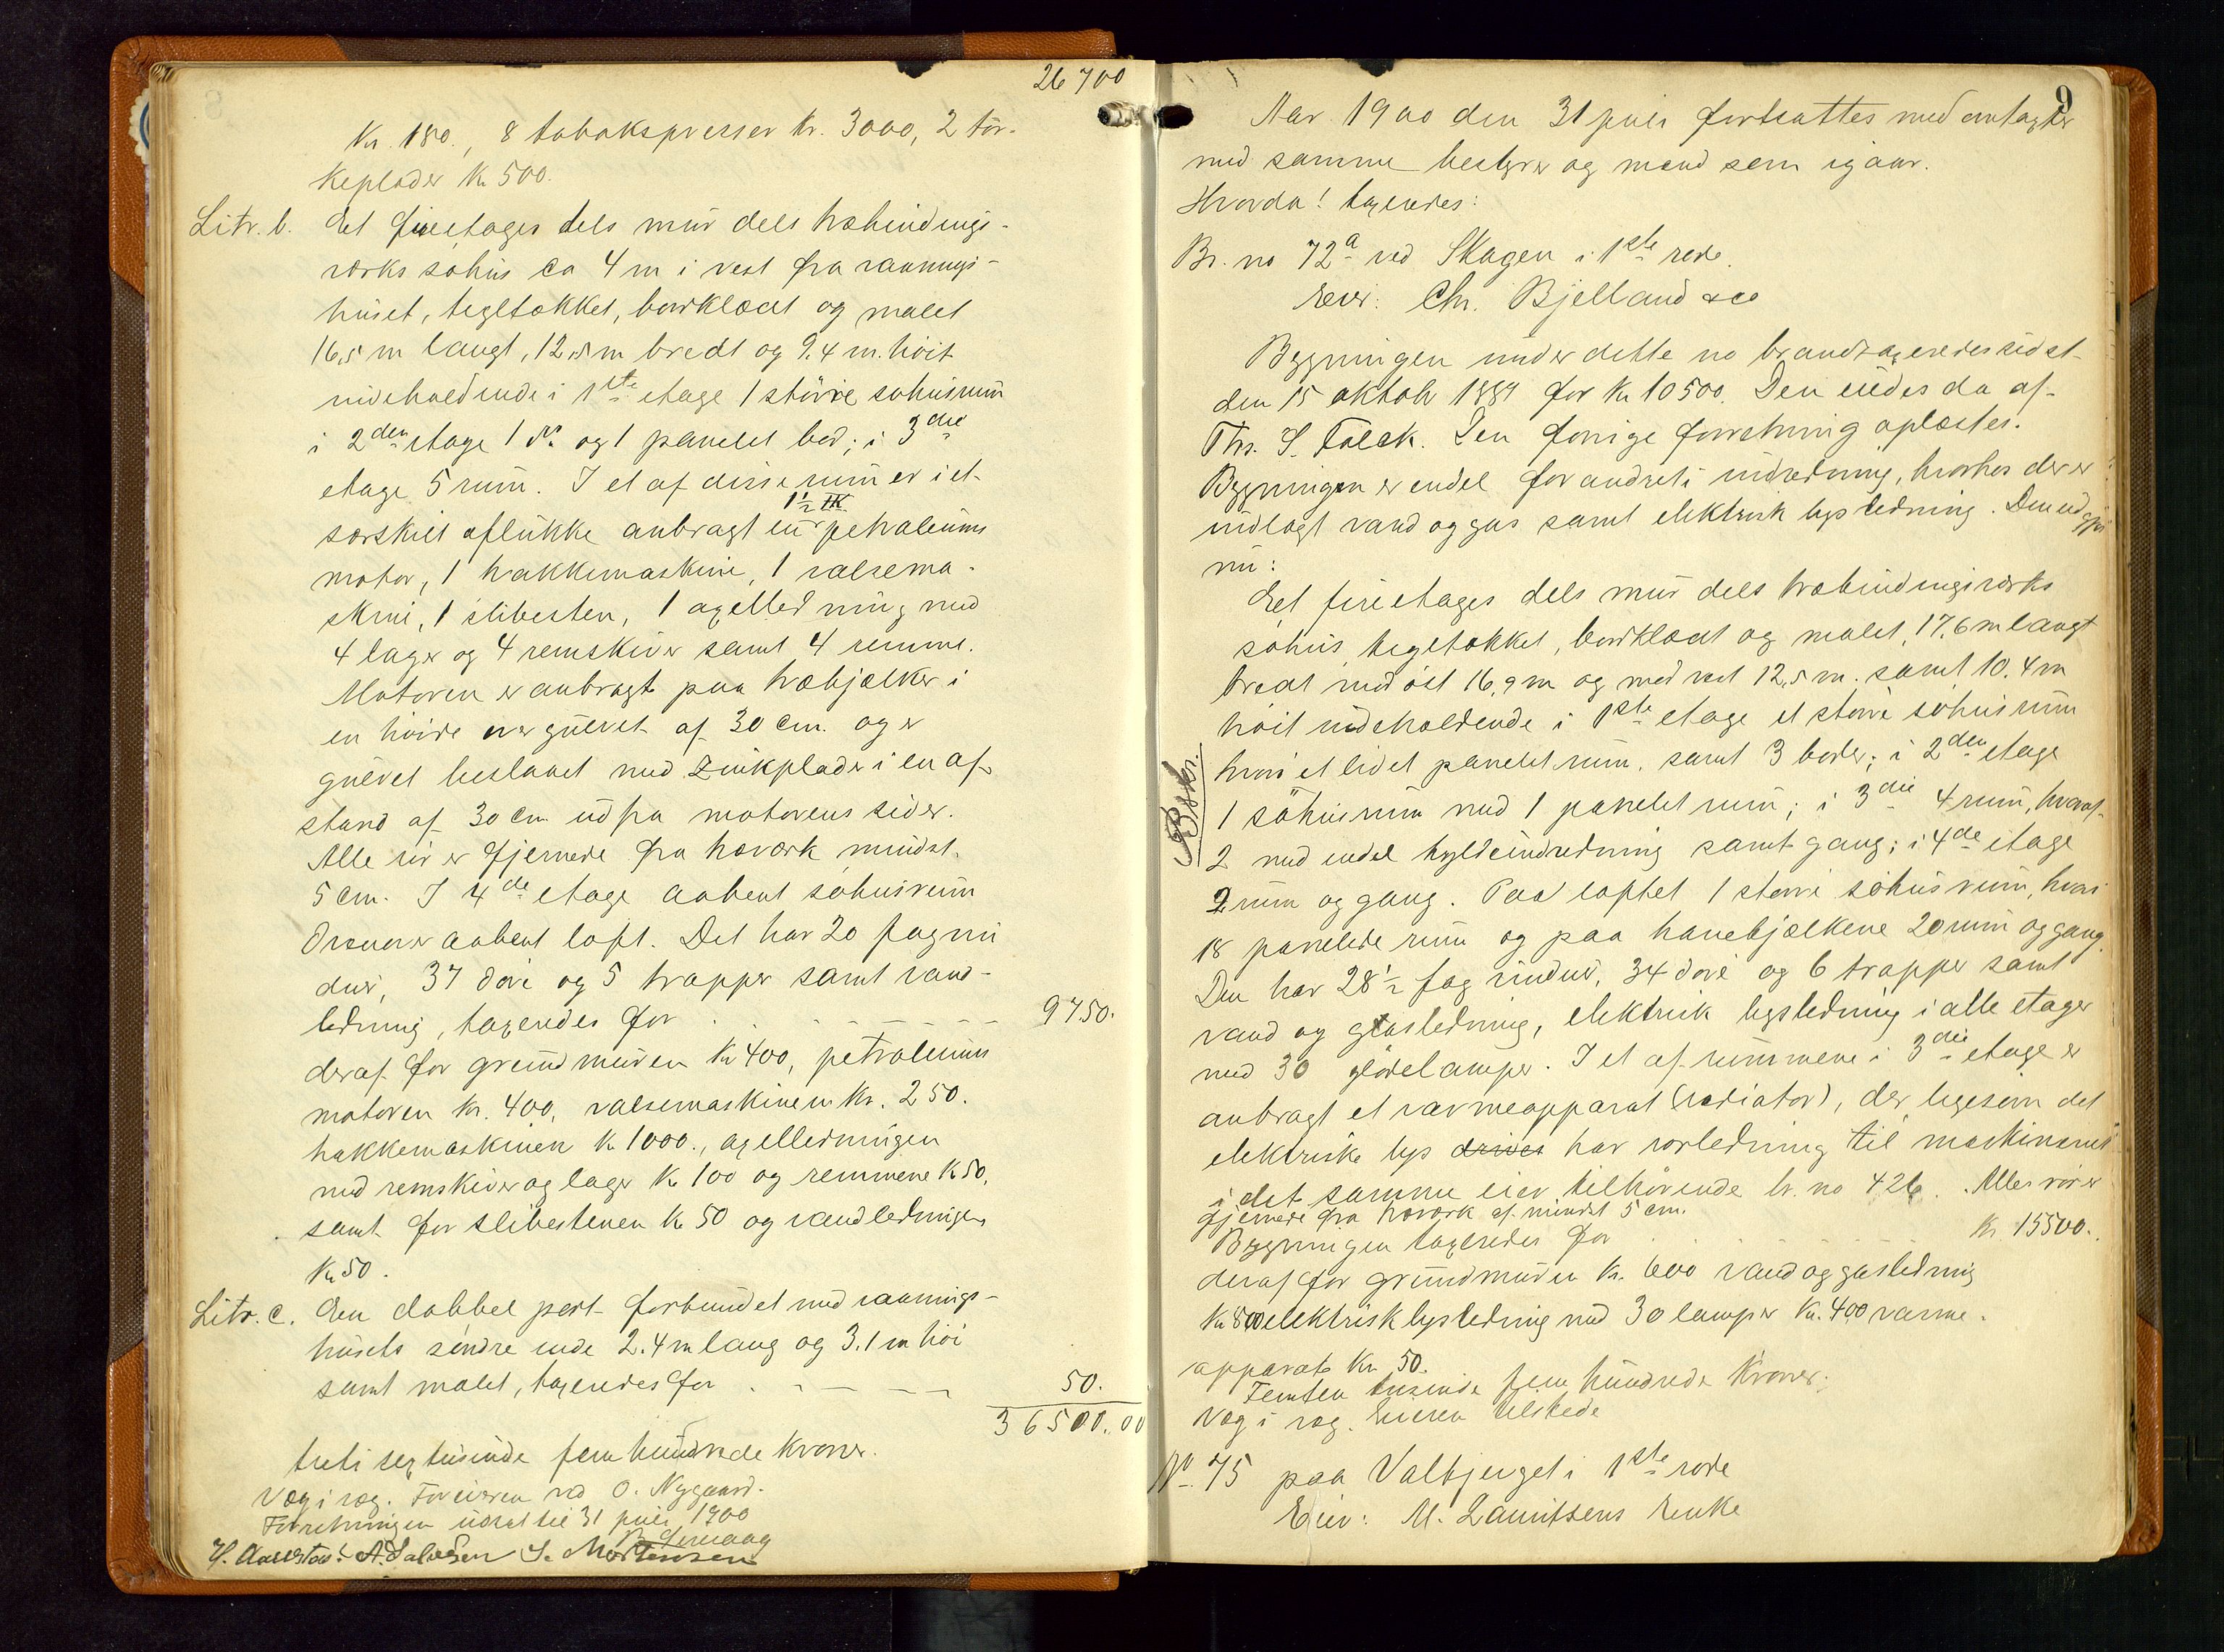 26 700
Kr. 180., 8 tobakspresser kr. 3000, 2 tör-
keplader kr 500.
Litr. b. Et fireetages dels mur dels træbindings-
værks søhus ca 4 m i vest fra vaanings-
huset, tegltækket, bordklædt og malet
16,5 m langt, 12,5 m bredt og 9,4 m. høit
indeholdende i 1ste etage 1 større søhusrum
i 2den etage 1 do og 1 panelet bod; i 3die
etage 5 rum. I et af disse rum er i et
særskilt aflukke anbragt en 1½ HK petroleums
motor, 1 hakkemaskine, 1 valsema-
skine, 1 slibesten, 1 axelledning med
4 lager og 4 remskiver samt 4 remme.
Motoren er anbragt paa træbjælker i
en høide over gulvet af 30 cm. og er
gulvet beslaaet med zinkplader i en af-
stand af 30 cm ud fra motorens sider.
Alle rör er fjernede fra træværk mindst
5 cm. I 4de etage aabent søhusrum
Ovenover aabent loft. Det har 20 fag vin
duer, 37 døre og 5 trapper samt vand-
ledning, taxeredes for . . 9750.
deraf for grundmuren kr 400, petroleums
motoren kr. 400, valsemaskinen kr. 250.
hakkemaskinen kr 1000., axelledningen
med remskiver og lager kr 100 og remmene kr 50,
samt for slibestenen kr 50 og vandledningen
kr 50.
Litr. c. En dobbel port forbundet med vaanings-
husets søndre ende 2.4 m lang og 3.1 m høi
samt malet, taxeredes for . . 50.
36500.00
treti sex tusinde fem hundrede kroner.
Væg i væg. For eieren var O. Nygaard.
Forretningen udsat til 31 juli 1900
A. Salvesen S. Mortensen
9
Aar 1900 den 31 juli fortsattes med omtaxter
med samme bestyrer og mænd som igaar.
Hvorda! taxeredes:
Br. no 72a ved Skagen i 1ste rode.
Eier: Chr. Bjelland & co
Bygningen under dette no brandtaxeredes sidst
den 15 oktobr 1889 for kr 10500. Den eiedes da af
Ths. S. Falck. Den forrige forretning oplæstes.
Bygningen er endel forandret i indredning, hvorhos der er
indlagt vand og gas samt elektrisk lysledning. Den udgjör
nu:
Et fireetages dels mur dels træbindingsværks
søhus, tegltækket, bordklædt og malet, 17,6 m langt
bredt mod öst 16,9 m og mod vest 12,5 m. samt 10.4 m
høit indeholdende i 1ste etage et større søhusrum
hvori et lidet panelet rum. samt 3 boder; i 2den etage
1 søhusrum med 1 panelet rum; i 3die 4 rum, hvoraf
2 med endel hyldeindredning samt gang; i 4de etage
2 rum og gang. Paa loftet 1 større søhusrum, hvori
18 panelede rum og paa hanebjælkene 2 rum og gang.
Den har 28½ fag vinduer, 34 døre og 6 trapper samt
vand og gasledning, elektrisk lysledning i alle etager
med 30 glødelamper. I et af rummene i 3die etage er
anbragt et varmeapparat (radiator), der ligesom det
elektriske lys drives har rørledning til maskineriet
i det samme eier tilhørende br. no 426. Alle rör er
fjernede fra træværk af mindst 5 cm.
Bygningen taxeredes for kr. 15500.
deraf for grundmuren kr. 600 vand og gasledning
kr 800 elektrisk lysledning med 30 lamper kr. 400 varme-
apparat kr 50.
Femten tusinde fem hundrede kroner.
Væg i væg. Eieren tilstede
No. 75 paa Valbjerget i 1ste rode
Eier: M. Lauritsens Enke